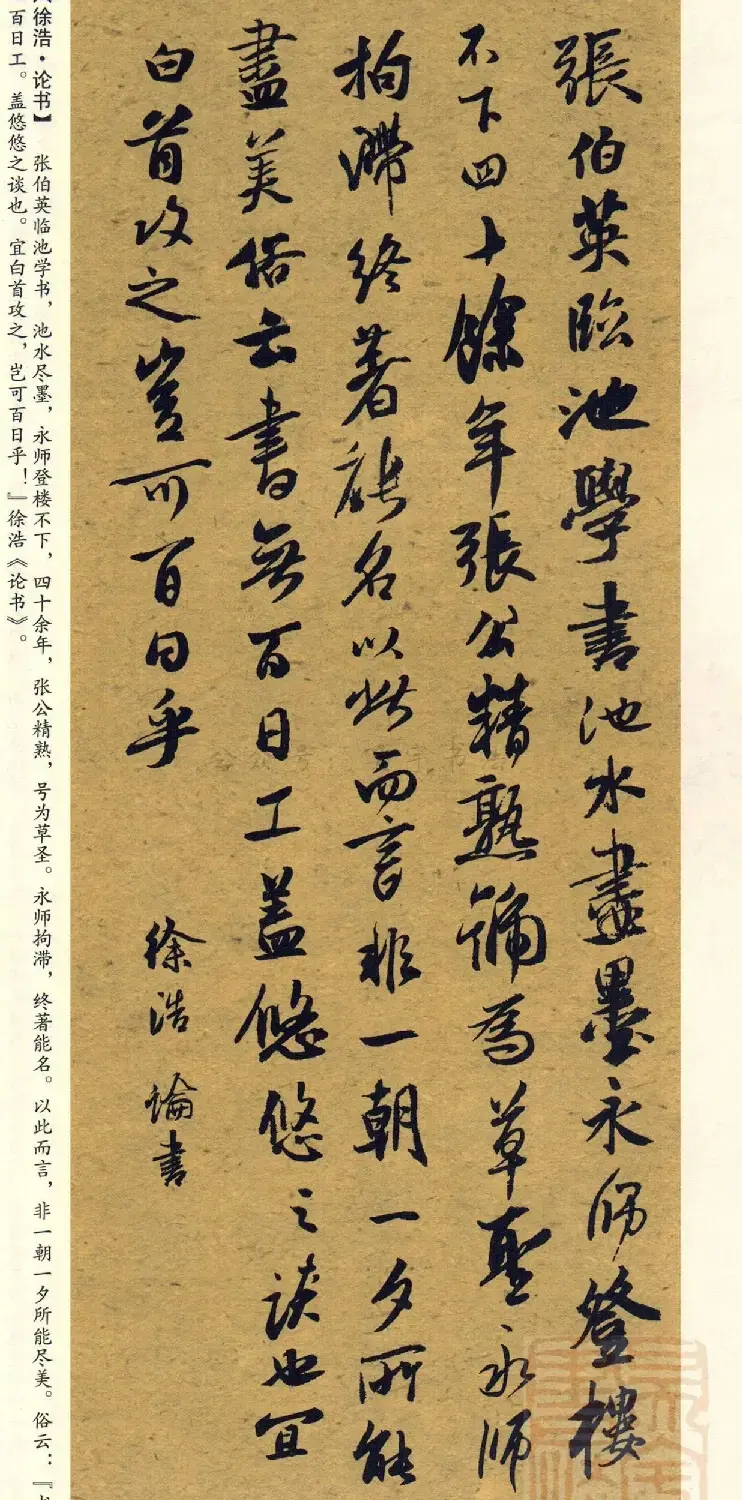 張伯英臨池學書池水盡墨永師登樓
不下四十餘年張公精熟號為草聖永師
拘滯終著能名以此而言非一朝一夕所能
盡美俗云書無百日工蓋悠悠之談也宜
白首攻之豈可百日乎
徐浩論書
徐浩·论书】 张伯英临池学书，池水尽墨，永师登楼不下，四十余年，张公精熟，号为草圣。永师拘滞，终著能名。以此而言，非一朝一夕所能尽美。俗云：『书
百日工。盖悠悠之谈也。宜白首攻之，岂可百日乎！』徐浩《论书》。